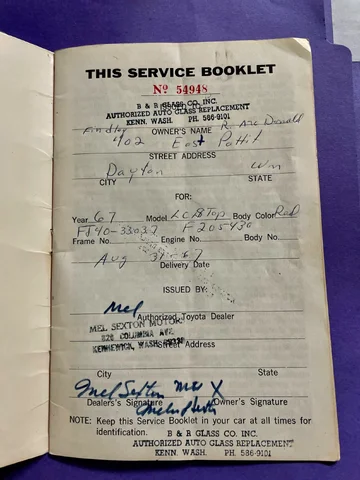 THIS SERVICE BOOKLET
No 54948
ISSUED TO
B & R GLASS CO. INC.
AUTHORIZED AUTO GLASS REPLACEMENT
KENN. WASH. PH. 586-9101
Findley R. Mc Donald
OWNER'S NAME
402 East Pattit
STREET ADDRESS
Dayton Wn
CITY STATE
FOR:
Year 67 Model LC H Top Body Color Red
FJ40-33037 F 205430
Frame No. Engine No. Body No.
Aug 31-67
Delivery Date
ISSUED BY:
Mel
Authorized Toyota Dealer
MEL SEXTON MOTOR
820 COLUMBIA AVE.
KENNEWICK, WASH. 99336
Street Address
City State
Mel Sexton X
Dealer's Signature Owner's Signature
NOTE: Keep this Service Booklet in your car at all times for
identification.
B & R GLASS CO. INC.
AUTHORIZED AUTO GLASS REPLACEMENT
KENN. WASH. PH. 586-9101